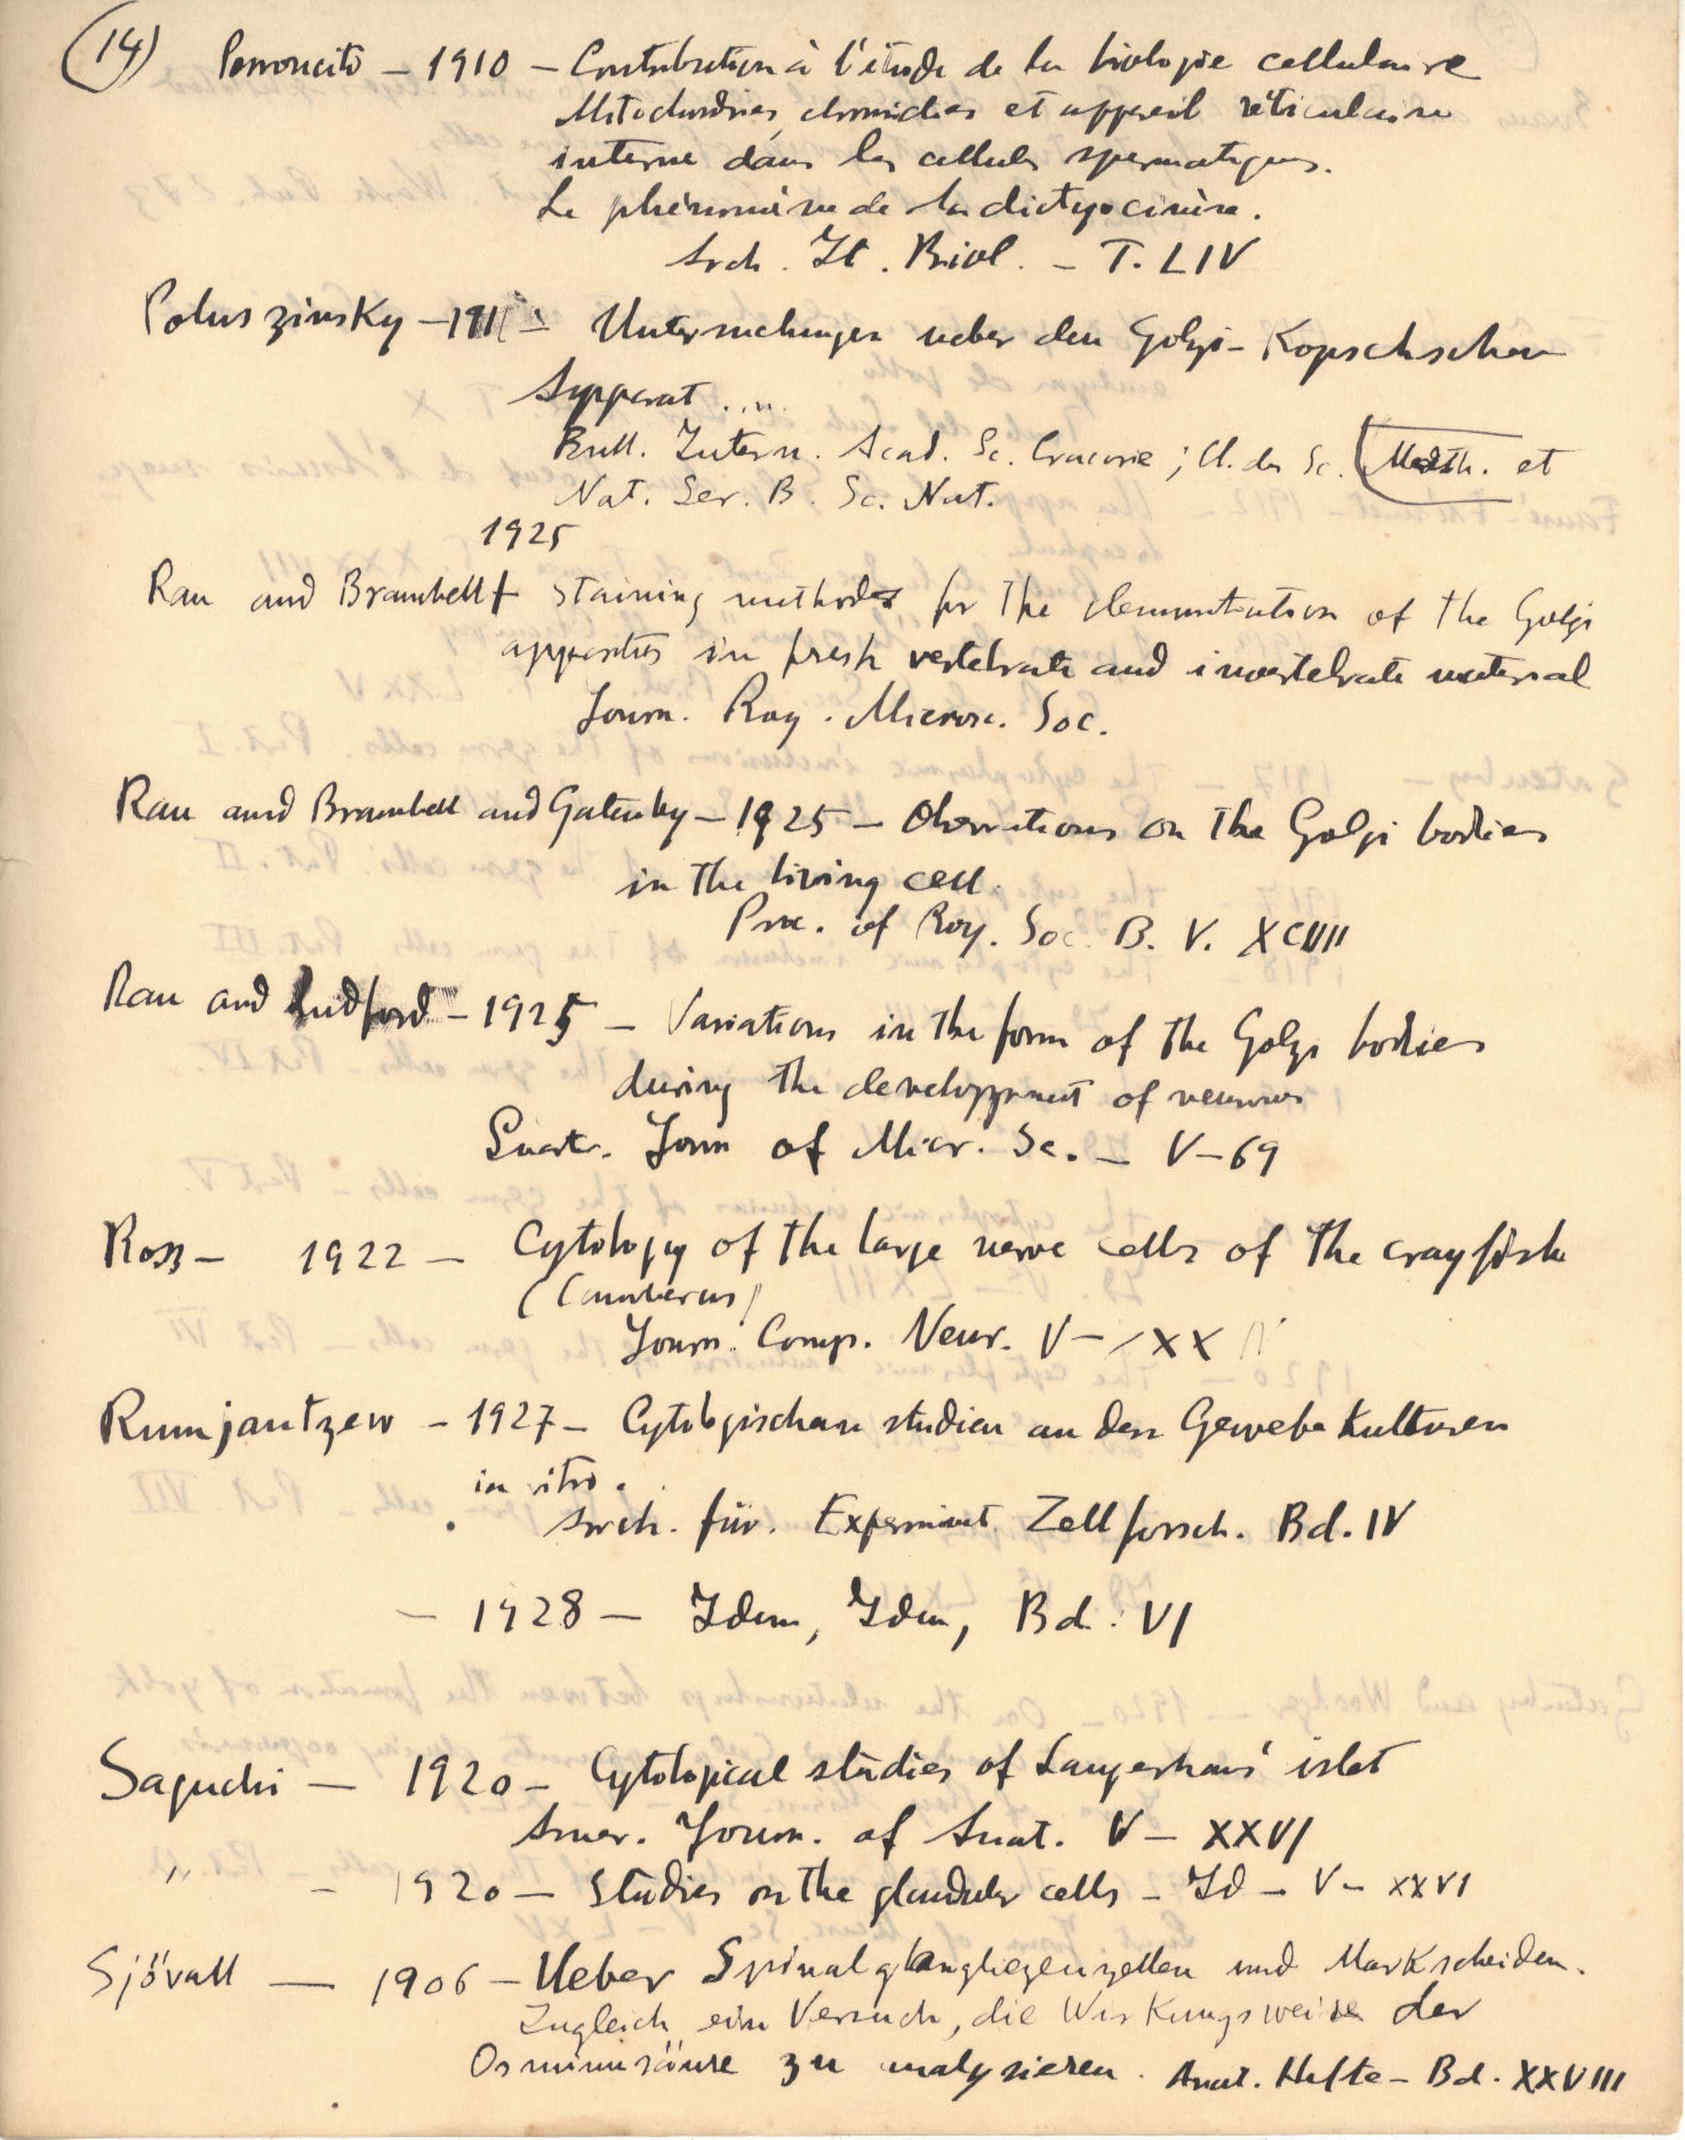 (14) Perroncito – 1910 – Contribution à l'étude de la biologie cellulaire
Mitochondries, chromidies et appareil réticulaire
interne dans les cellules spermatiques.
Le phénomène de la dictyocinèse.
Arch. It. Biol. – T. LIV
Poluszinsky – 1911 – Untersuchungen ueber den Golgi-Kopschschen
Apparat ....
Bull. Intern. Acad. Sc. Cracovie ; Cl. des Sc. Math. et
Nat. Ser. B. Sc. Nat.
1925
Rau and Brambell – Staining methods for the demonstration of the Golgi
apparatus in fresh vertebrate and invertebrate material
Journ. Roy. Microsc. Soc.
Rau and Brambell and Gatenby – 1925 – Observations on the Golgi bodies
in the living cell.
Proc. of Roy. Soc. B. V. XCVII
Rau and Ludford – 1925 – Variations in the form of the Golgi bodies
during the developpment of neurones
Quart. Journ of Micr. Sc. – V – 69
Ross – 1922 – Cytology of the large nerve cells of the crayfish
(Cambarus)
Journ. Comp. Neur. V –
Rumjantzew – 1927 – Cytologischen studien an den Gewebe Kulturen
in vitro.
Arch. für. Experiment. Zellforsch. Bd. IV
– 1928 – Idem, Idem, Bd. VI
Saguchi – 1920 – Cytological studies of Langerhans' islet
Amer. Journ. of Anat. V – XXVI
" – 1920 – Studies on the glandular cells – Id – V – XXVI
Sjövall – 1906 – Ueber Spinalganglienzellen und Markscheiden.
Zugleich ein Versuch, die Wirkungsweise der
Osmiumsäure zu analysieren. Anat. Hefte – Bd. XXVIII